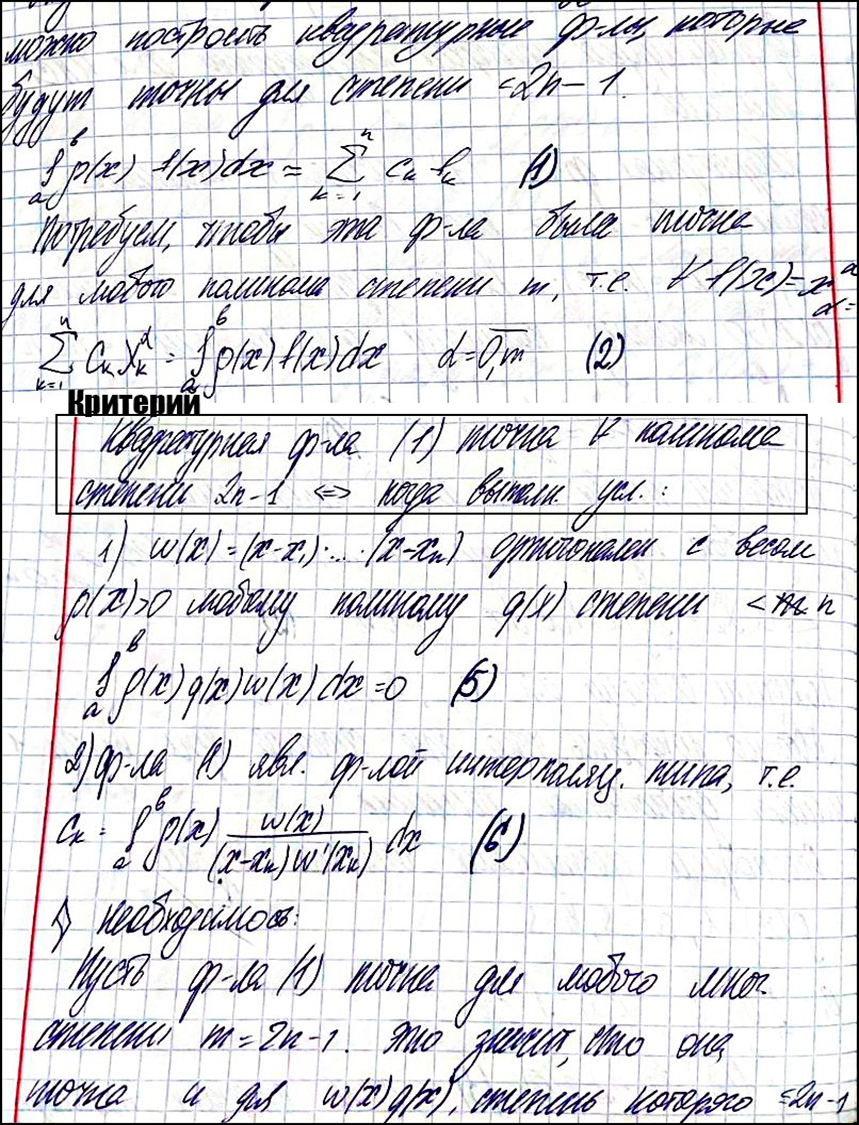 можно построить квадратурные ф-лы, которые
будут точны для степени =2n-1.
∫ₐᵇ ρ(x) f(x)dx ≈ ∑ₖ₌₁ⁿ cₖ fₖ (1)
Потребуем, чтобы эта ф-ла была точна
для любого полинома степени m, т.е. ∀ f(x)=x^α
α=
∑ₖ₌₁ⁿ cₖ xₖ^α = ∫ₐᵇ ρ(x) f(x)dx α=0,m (2)
Критерий
Квадратурная ф-ла (1) точна ∀ полинома
степени 2n-1 <=> когда выполн. усл.:
1) w(x)=(x-x₁)·...·(x-xₙ) ортогонален с весом
ρ(x)>0 любому полиному q(x) степени < n
∫ₐᵇ ρ(x) q(x) w(x) dx =0 (5)
2) ф-ла (1) явл. ф-лой интерполяц. типа, т.е.
cₖ = ∫ₐᵇ ρ(x) w(x)/((x-xₖ)w'(xₖ)) dx (6)
необходимось:
Пусть ф-ла (1) точна для любого мног.
степени m=2n-1. Это значит, что она
точна и для w(x)q(x), степень которого =2n-1